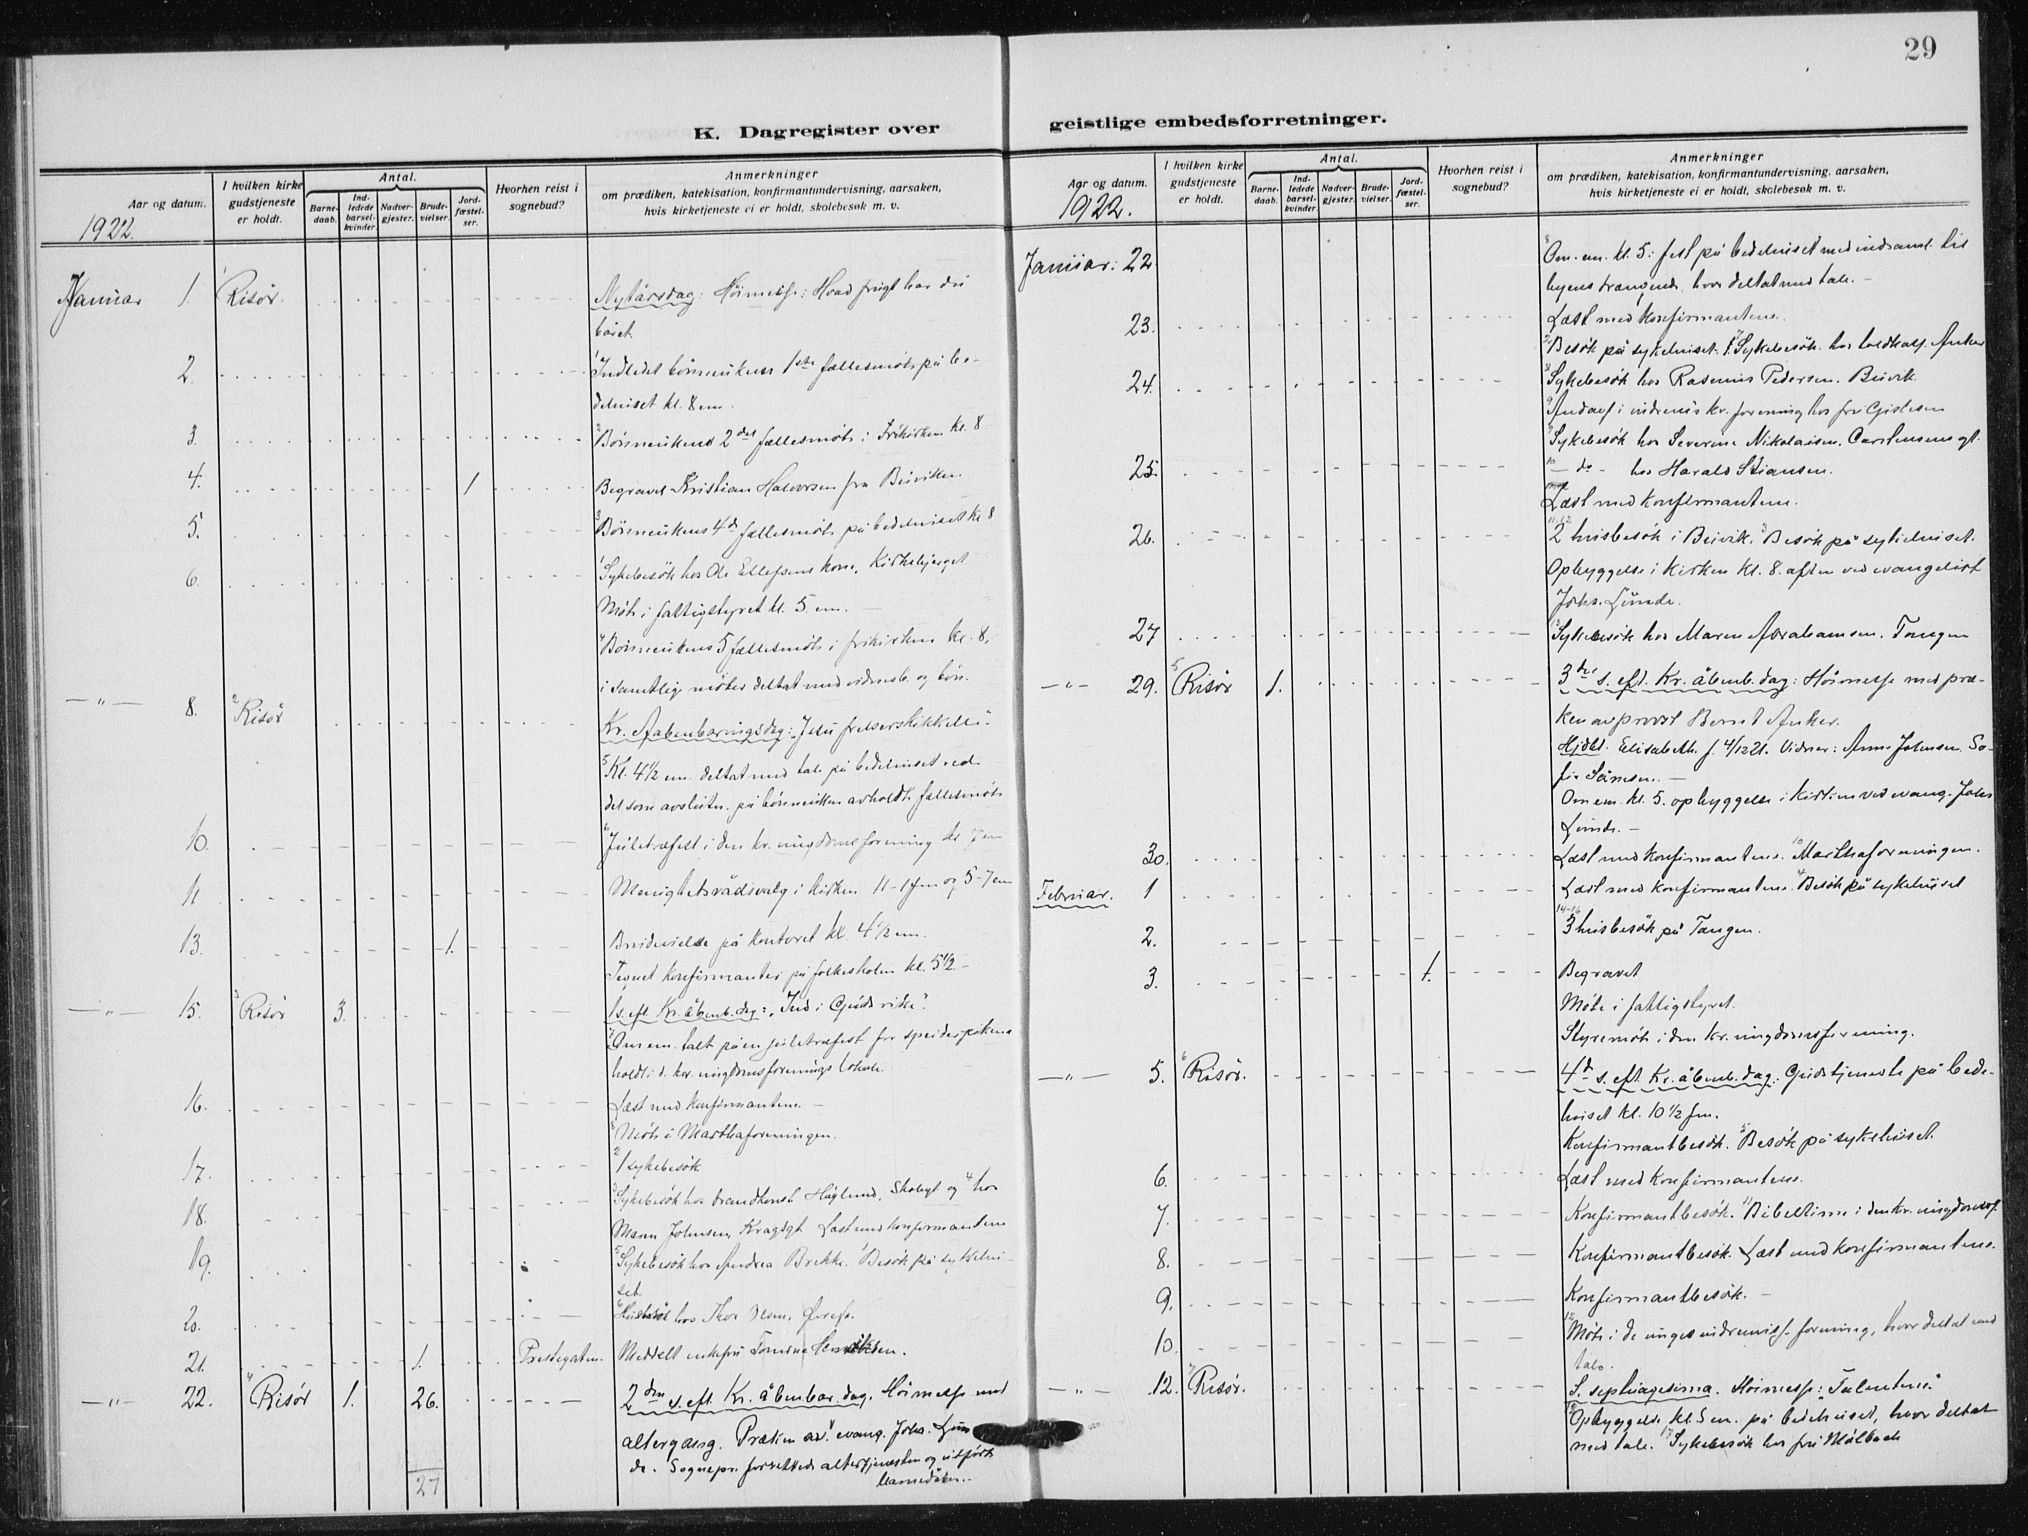 29
K. Dagregister over
geistlige embedsforretninger.
Aar og datum.
1922.
I hvilken kirke gudstjeneste er holdt.
Antal.
Barnedaab.
Indledede barselkvinder.
Nadvergjester.
Brudevielser.
Jordfæstelser.
Hvorhen reist i sognebud?
Anmerkninger
om prædiken, katekisation, konfirmantundervisning, aarsaken,
hvis kirketjeneste ei er holdt, skolebesøk m. v.
Januar 1. 1 Risör. Nytårsdag: Höimesse: Hvad frugt har du
båret.
2. 1 Indledet bönneukens 1ste fællesmöte på be-
dehuset kl. 8 em.
3. 2 Bönneukens 2det fællesmöte i Frikirken kl. 8.
4. 1 Begravet Kristian Halvorsen fra Buviken
5. 3 Bönneukens 4de fællesmöte på bedehuset kl 8
6. 1 Sykebesök hos Ole Ellefsens kone, Kirkebjerget
Möte i fattigstyret kl. 5 em. —
4 Bönneukens 5 fællesmöte i frikirken kl. 8.
i samtlige möter deltat med vidnesb. og bön.
—"— 8. 2 Risör Kr. Aabenbaringsdag: "Jesu frelserskikkelse".
5 Kl. 4½ em. deltat med tale på bedehuset ved
det som avslutn. på bönneuken avholdte fællesmöte
10. 6 Juletræfest i den kr. ungdomsforening kl 7 em
11 Menighetsrådsvalg i kirken 11-1 fm og 5-7 em
13. 1. Brudevielse på kontoret kl. 4½ em.
Tegnet konfirmanter på folkeskolen kl. 5½ —
—"— 15. 3 Risör 3. 1 s. eft. Kr. åbenb. dag: "Ind i Guds rike".
7 Om em. talt på en juletræfest for speiderpikene
holdt i d. kr. ungdomsforenings lokale.
16. Læst med konfirmantene. —
8 Möte i Marthaforeningen.
17. 2 1 sykebesök
18. 3 Sykebesök hos brandkonst Höglund, Skolegt og 4 hos
Maren Johnsen, Kragsgt Læst med konfirmantene
19. 5 Sykebesök hos Andrea Brekke. 1 Besök på sykehu-
set
20. 6 Husbesök hos Thor
21. 1. Prestegaten. Meddelt enkefru Tomine Henriksen.
—"— 22. 4 Risör 1. 26. 2den s. eft. Kr. åbenbar. dag. Höimesse med
altergang. Præken av evang. Johs. Lun
de. Sognepr. forrettede altertjenesten og utförte
barnedåben.
27
Aar og datum.
1922.
I hvilken kirke gudstjeneste er holdt.
Antal.
Barnedaab.
Indledede barselkvinder.
Nadvergjester.
Brudevielser.
Jordfæstelser.
Hvorhen reist i sognebud?
Anmerkninger
om prædiken, katekisation, konfirmantundervisning, aarsaken,
hvis kirketjeneste ei er holdt, skolebesøk m. v.
Januar: 22 Om em. kl. 5: fest på bedehuset med indsaml. til
byens trængende, hvor deltat med tale. —
23. Læst med konfirmantene.
2 Besök på sykehuset. 7 Sykebesök hos Anker
24. 8 Sykebesök hos Rasmus Pedersen. Buvik.
9 Andagt i indremis kr. forening hos fru Gjislesen
9 Sykebesök hos Severine Nikolaisen, Carstensens gt.
25. 10 — do — hos Harald Stiansen.
Læst med konfirmantene.
26. 11-12 2 husbesök i Buvik. 3 Besök på sykehuset.
Opbyggelse i kirken kl. 8. aften ved evangelist
Johs. Lunde.
27 13 Sykebesök hos Maren Abrahamsen. Tangen
—"— 29. 5 Risör 1. 3die s. eft. Kr. åbenb. dag: Höimesse med præ-
ken av provst Bernt Anker.
Hjdbt. Elisabeth f. 4/12 21. Vidner: Anne Johnsen. So-
fie Sörnsen. —
Om em. kl. 5. opbyggelse i kirken ved evang. Johs
Lunde. —
30. Læst med konfirmantene. 10 Marthaforeningen.
Februar. 1 Læst med konfirmantene. 4 Besök på sykehuset
2. 14-16 3 husbesök på Tangen.
3. 1. Begravet
Möte i fattigstyret.
Styremöte i den kr. ungdomsforening.
—"— 5. 6 Risör. 4de s. eft. Kr. åbenb. dag: Gudstjeneste på bede-
huset kl. 10½ fm.
Konfirmantbesök. 5 Besök på sykehuset.
6. Læst med konfirmantene.
7. Konfirmantbesök. 11 Bibeltime i den kr. ungdomsf.
8. Konfirmantbesök. Læst med konfirmantene.
9. Konfirmantbesök. —
10. 12 Möte i de unges indremiss. forening, hvor deltat med
tale.
—"— 12. 7 Risör. S. septuagesima. Höimesse: "Talentene".
13 Opbyggelse kl. 5 em. på bedehuset, hvor deltat
med tale. 17 Sykebesök hos fru Molbach